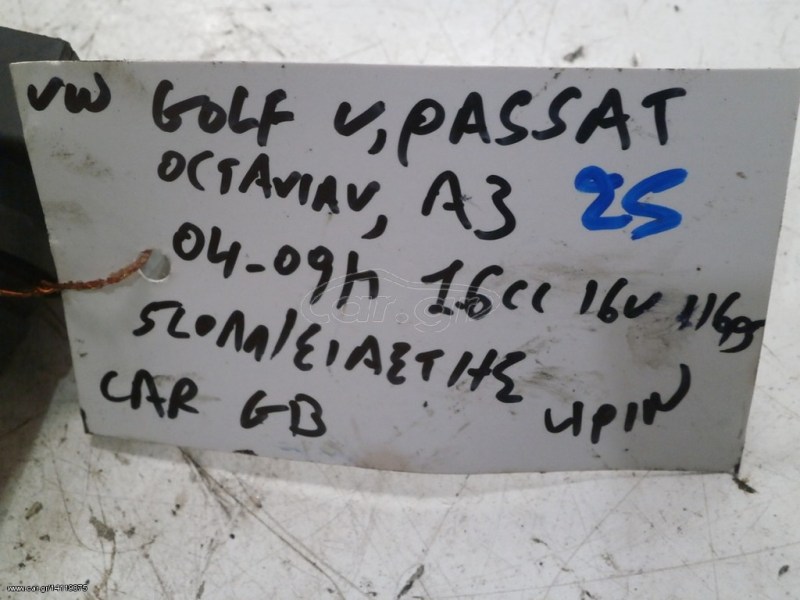 VW GOLF V, PASSAT
OCTAVIAV, A3 25
04-09h 1.6cc 16v 116ps
CAR GB 4PIN
car.gr
www.car.gr/14119875